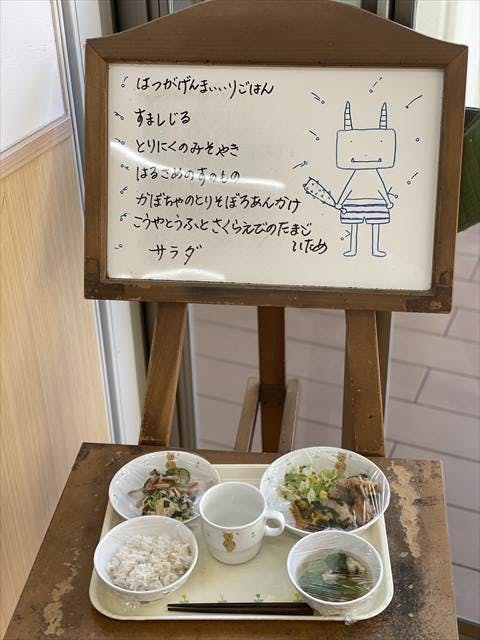 はつがげんまぃぃりごはん
すましじる
とりにくのみそやき
はるさめのすのもの
かぼちゃのとりそぼろあんかけ
こうやとうふとさくらえびのたまご
いため
サラダ